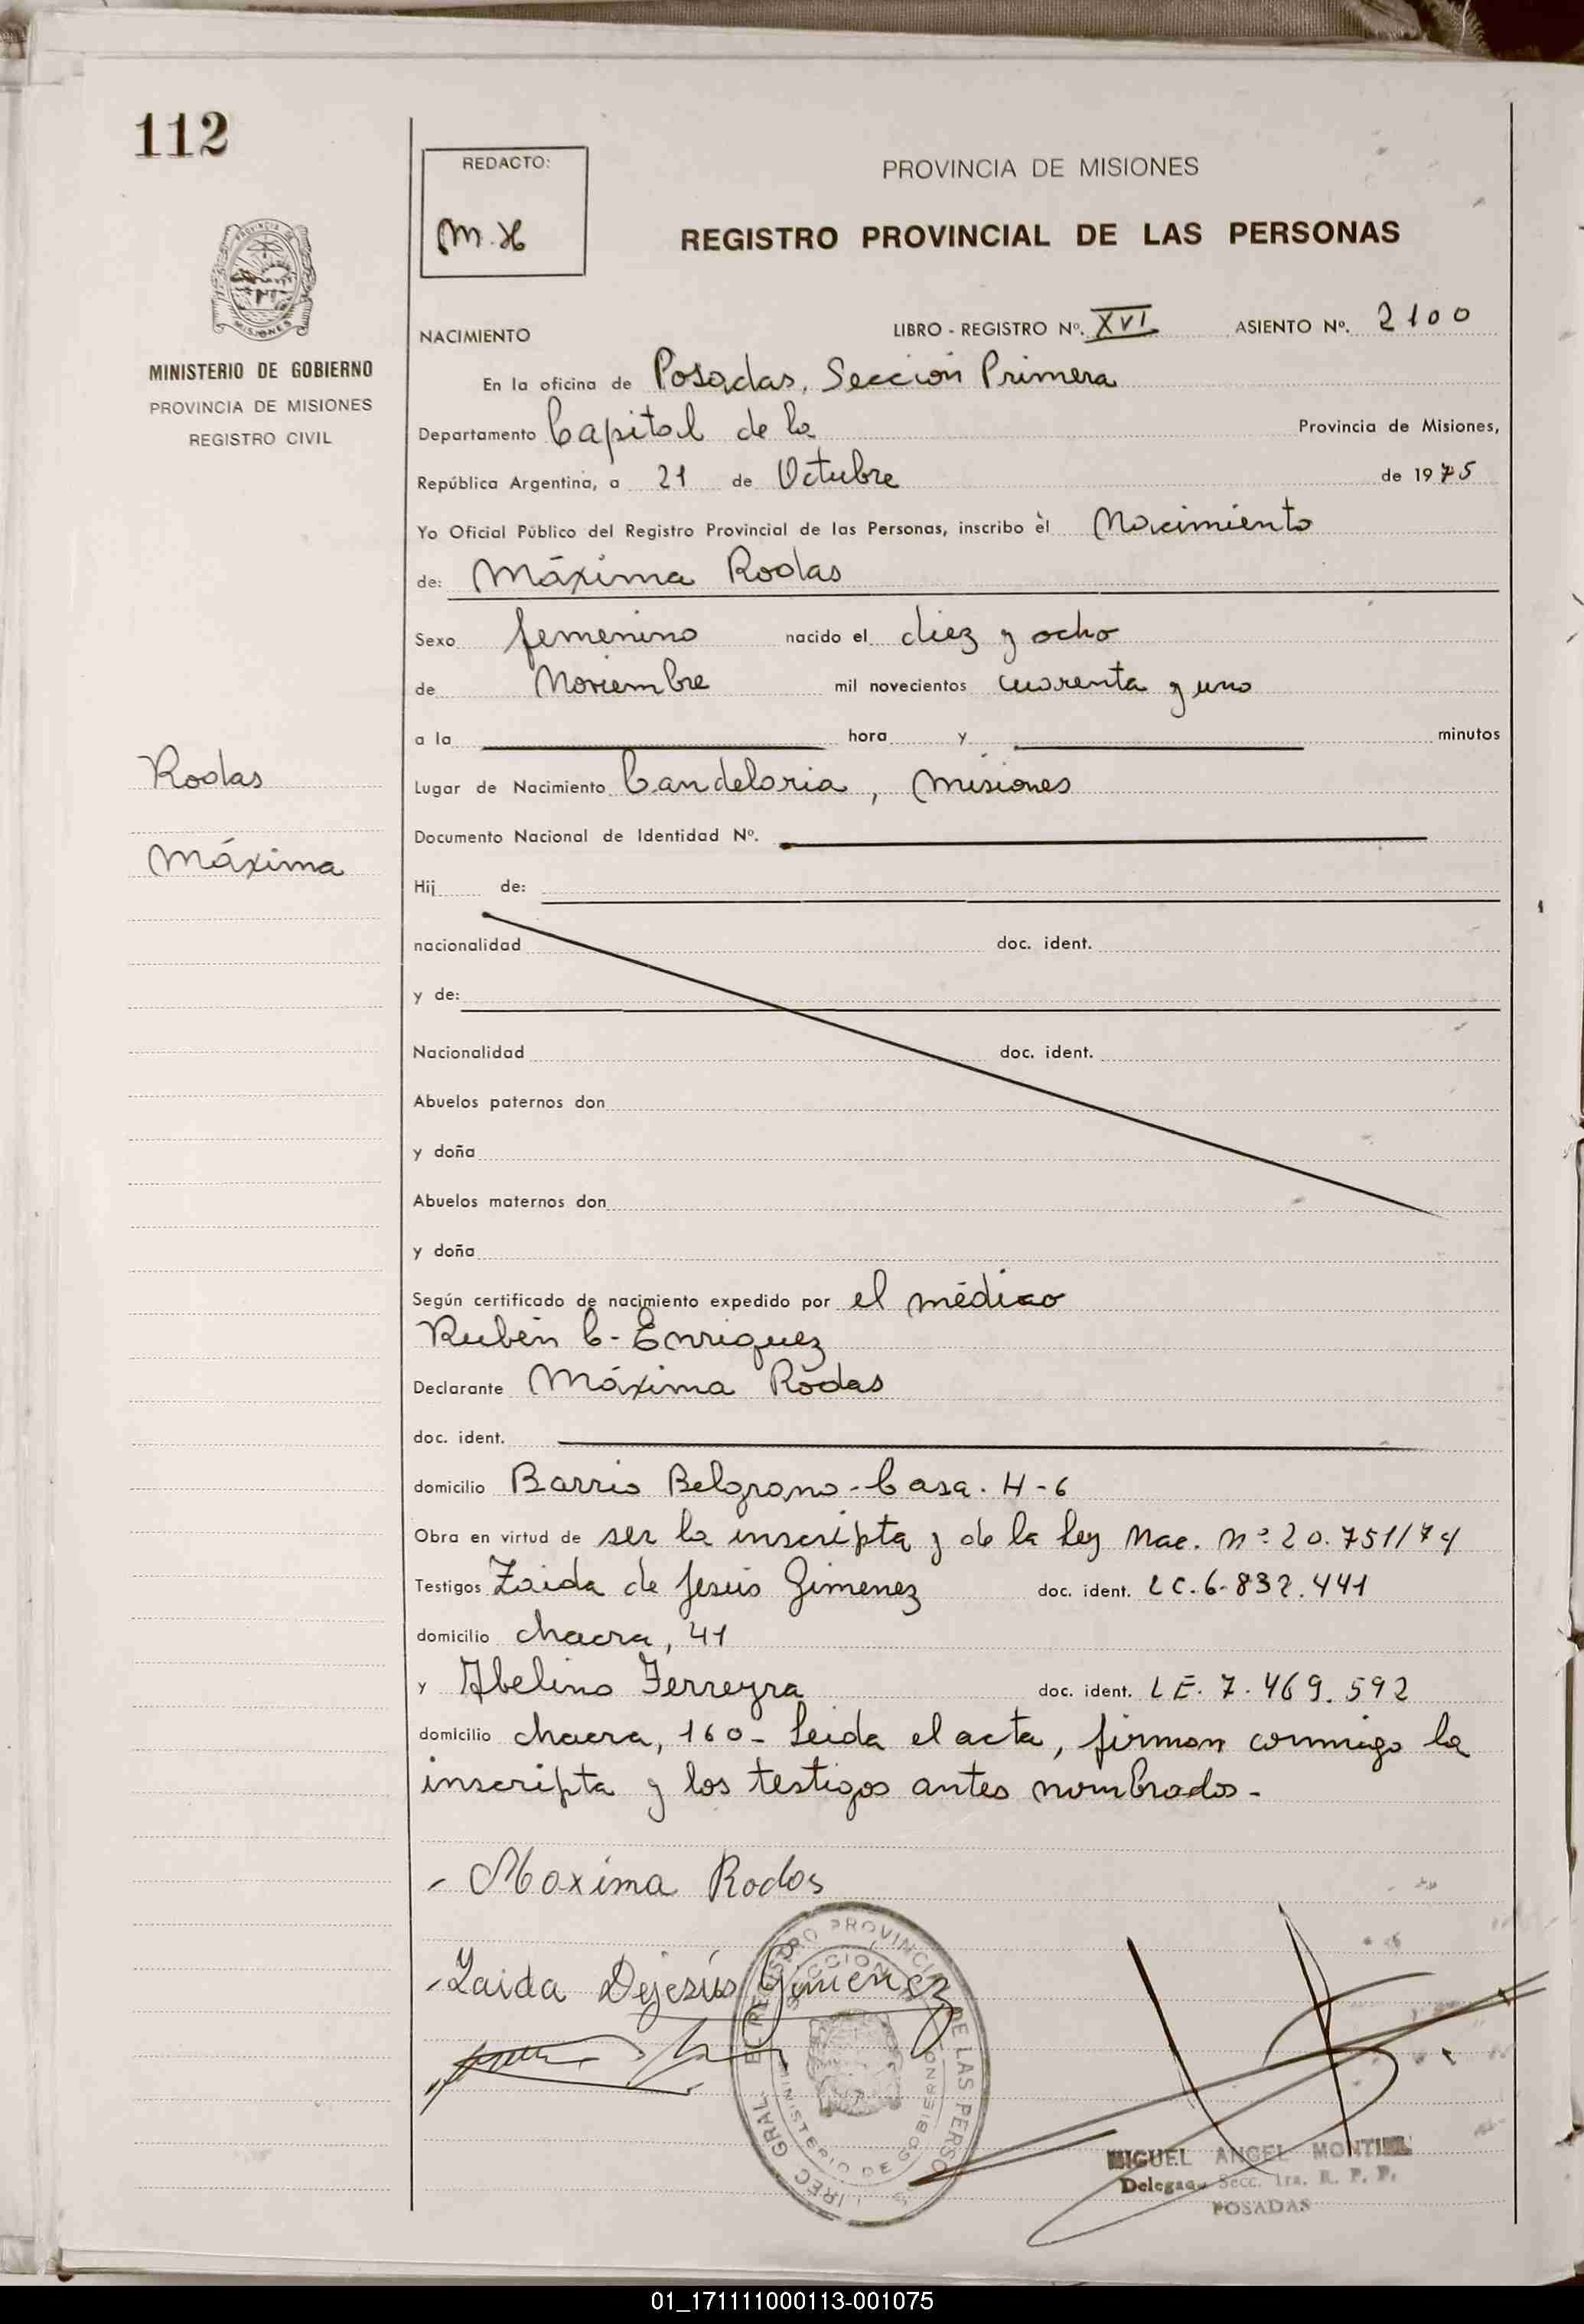 112
REDACTO:
M.H
PROVINCIA DE MISIONES
REGISTRO PROVINCIAL DE LAS PERSONAS
MISIONES
MINISTERIO DE GOBIERNO
PROVINCIA DE MISIONES
REGISTRO CIVIL
NACIMIENTO LIBRO - REGISTRO Nº. XVI ASIENTO Nº. 2100
En la oficina de Posadas, Sección Primera
Departamento Capital de la Provincia de Misiones,
República Argentina, a 21 de Octubre de 1975
Yo Oficial Público del Registro Provincial de las Personas, inscribo èl Nacimiento
de: Máxima Rodas
Sexo femenino nacido el diez y ocho
de Noviembre mil novecientos cuarenta y uno
a la hora y minutos
Rodas
Máxima
Lugar de Nacimiento Candelaria, Misiones
Documento Nacional de Identidad Nº.
Hij de:
nacionalidad doc. ident.
y de:
Nacionalidad doc. ident.
Abuelos paternos don
y doña
Abuelos maternos don
y doña
Según certificado de nacimiento expedido por el médico
Rubén C- Enriquez
Declarante Máxima Rodas
doc. ident.
domicilio Barrio Belgrano - Casa. H-6
Obra en virtud de ser la inscripta y de la ley Nac. Nº 20.751/74
Testigos Zaida de Jesús Gimenez doc. ident. LC. 6.832.441
domicilio chacra, 41
y Abelino Ferreyra doc. ident. LE. 7.469.592
domicilio chacra, 160- Leida el acta, firman conmigo la
inscripta y los testigos antes nombrados-
- Maxima Rodas
- Zaida Dejesús Gimenez
REGISTRO PROVINCIAL DE LAS PERSO
SECCION
MINISTERIO DE GOBIERNO
MIGUEL ANGEL MONTIEL
Delegado Secc. 1ra. R. P. P.
POSADAS
01_171111000113-001075